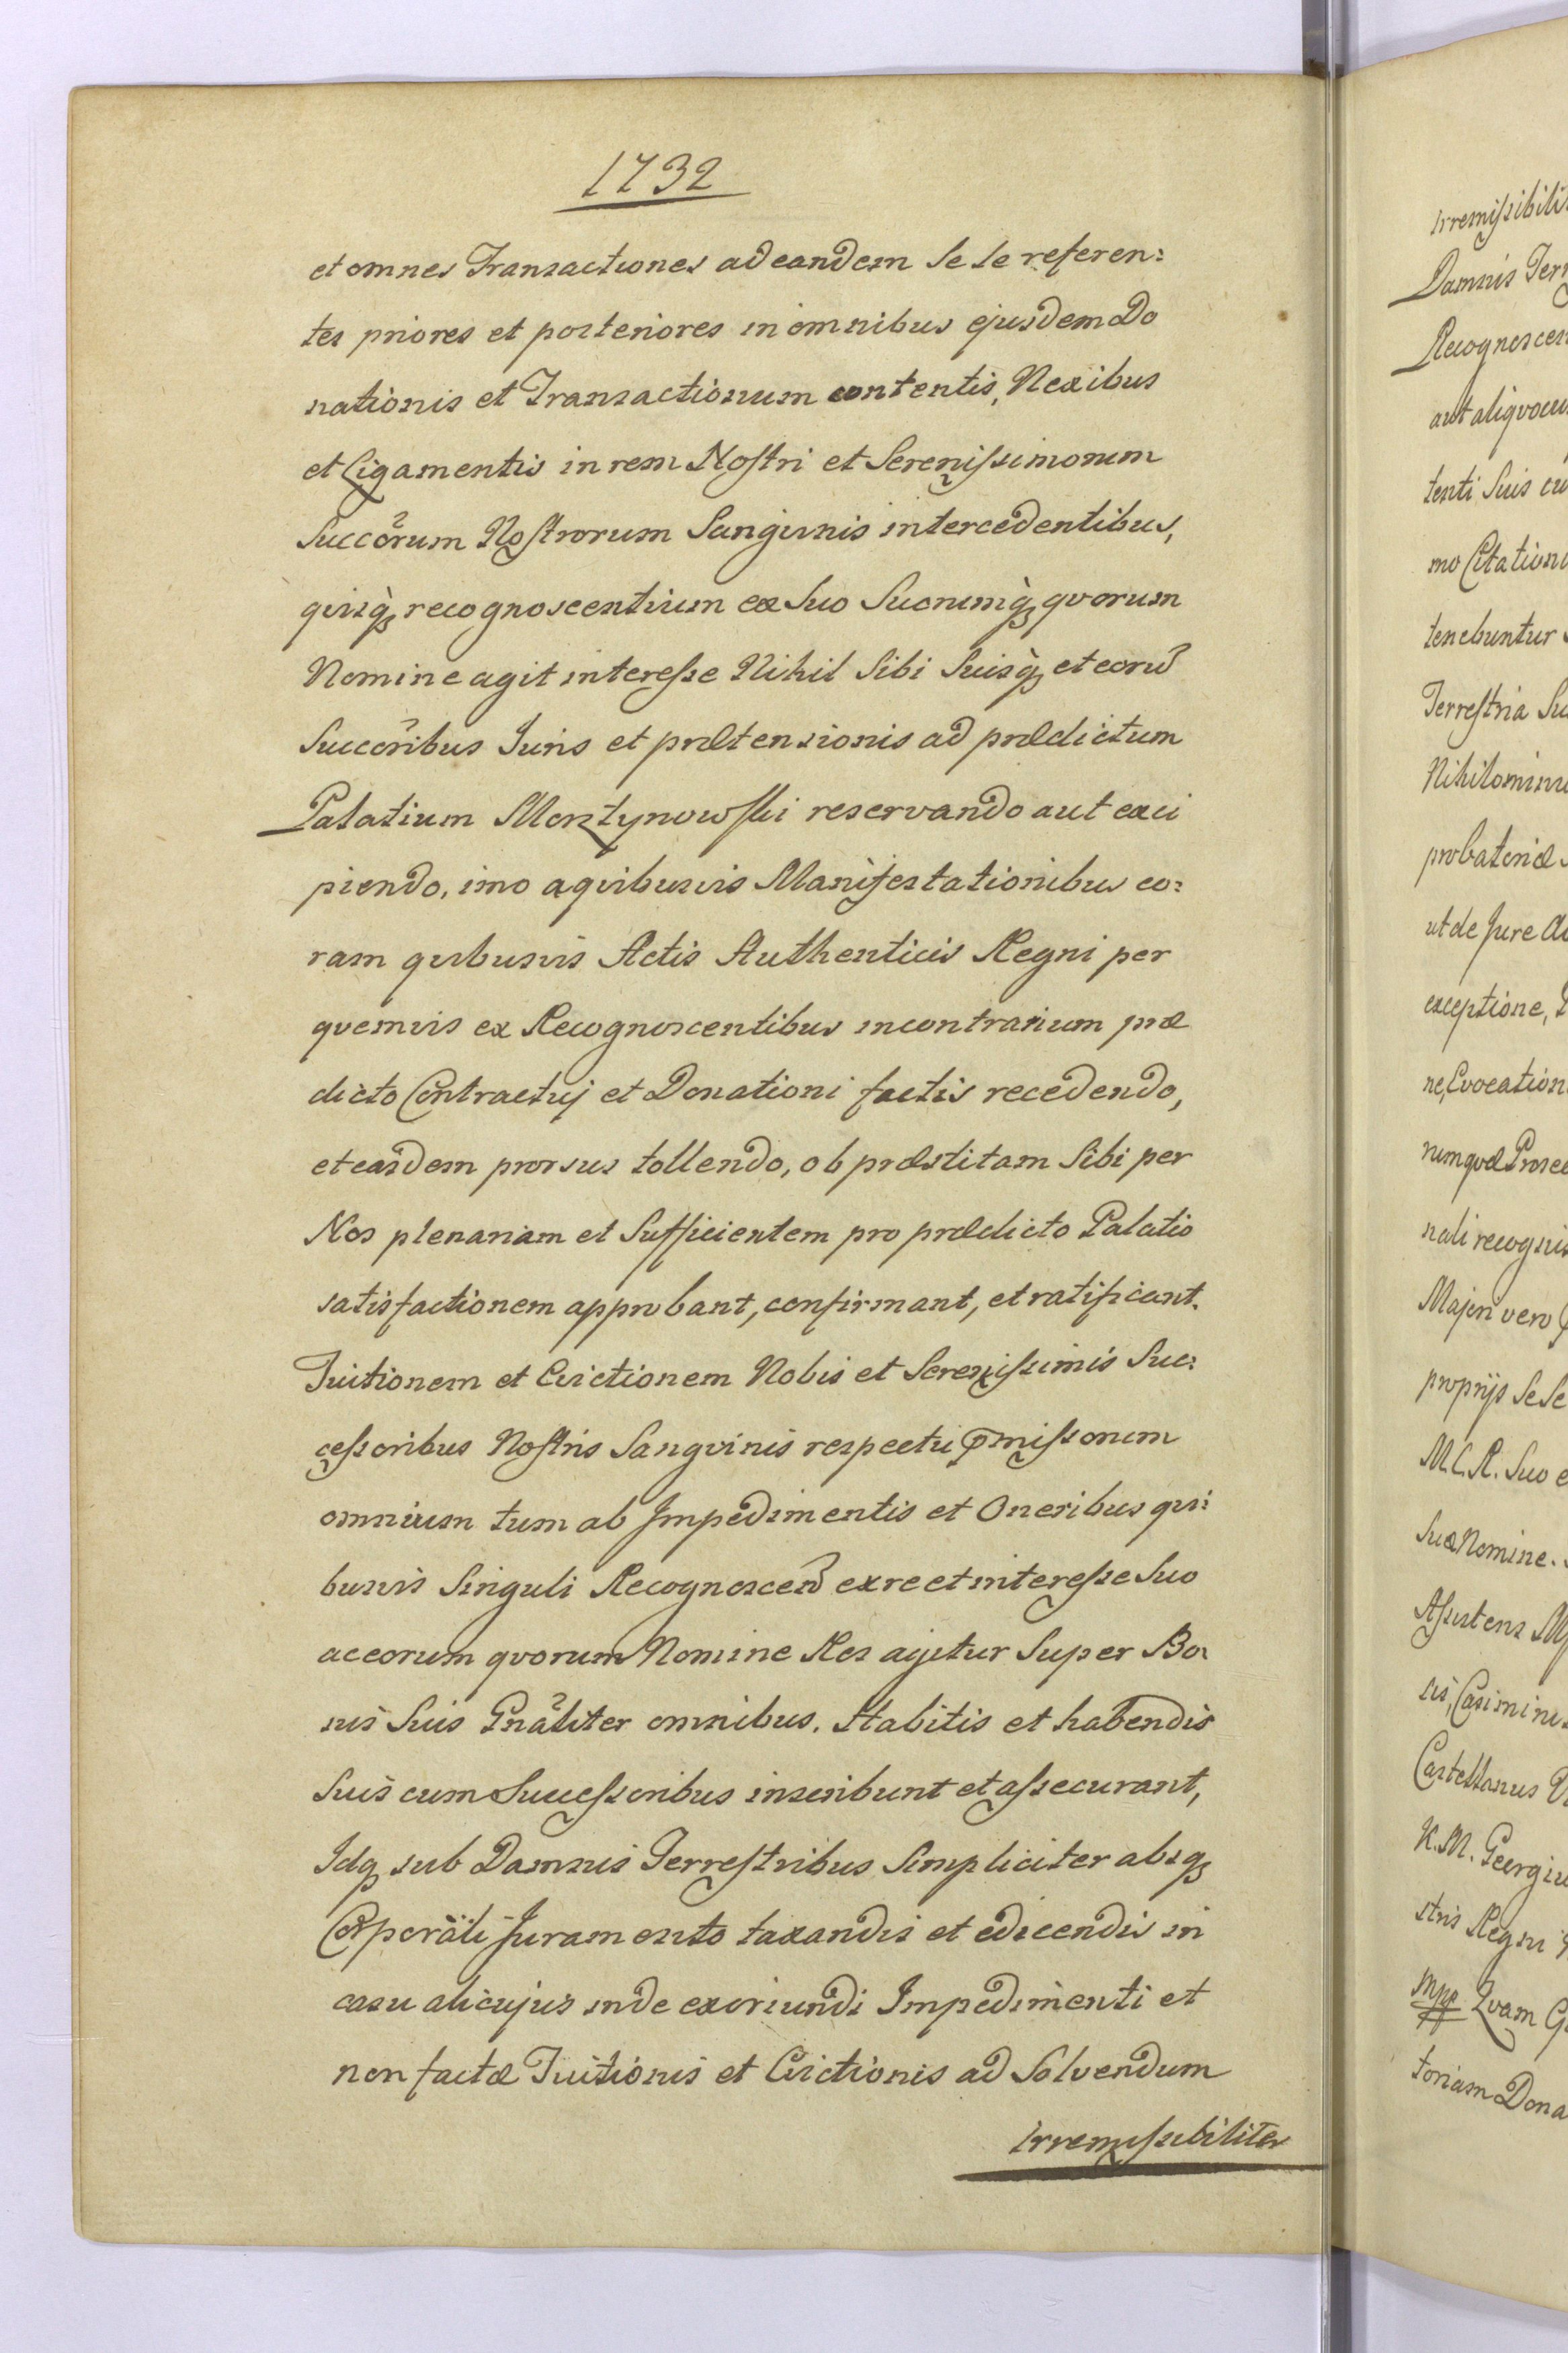 1732
et omnes Transactiones ad eandem se se referen:
tes priores et posteriores in omnibus ejusdem Do
nationis et Transactionum contentis, Nexibus
et Ligamentis in rem Nostri et Serenissimorum
Succõrum Nostrorum Sangvinis intercedentibus,
qvisq; recognoscentium ex Suo Suorumq; qvorum
Nomine agit interesse Nihil Sibi Suisq; et eorũ
Succõribus Juris et prætensionis ad prædictum
Palatium Morztynowski reservando aut exci
piendo, imo a qvibusvis Manifestationibus co:
ram qvibusvis Actis Authenticis Regni per
qvemvis ex Recognoscentibus in contrarium præ
dicto Contractuj et Donationi factis recedendo,
et easdem prorsus tollendo, ob præstitam Sibi per
Nos plenariam et Sufficientem pro prædicto Palatio
satisfactionem approbant, confirmant, et ratificant.
Tuitionem et Evictionem Nobis et Serenissimis Suc:
cessoribus Nostris Sangvinis respectu p̃missorum
omnium tum ab Impedimentis et Oneribus qvi:
busvis Singuli Recognoscen̄ ex re et interesse Suo
ac eorum qvorum Nomine Res agitur Super Bo:
nis Suis Gnãliter omnibus. Habitis et habendis
Suis cum Successoribus inscribunt et assecurant,
Idq; sub Damnis Terrestribus Simpliciter absq;
Corporali Juramento taxandis et edicendis in
casu alicujus inde exoriundi Impedimenti et
non factæ Tuitionis et Evictionis ad Solvendum
Irremissibiliter
irremissibili
Damnis Terr
Recognoscen
aut aliqvocu
tenti Suis cu
mo Citation
tenebuntur
Terrestria Su
Nihilominu
probatoriæ
ut de Jure
exceptione,
ne, Evocation
numqvæ Prose
nali recognis
Majori vero
proprijs Se Se
M.C.R. Suo e
Suæ Nomine.
Assistens
cis, Casimirus
Castellanus
K.M. Georgiu
stris Regni
mpp Qvam
toriam Dona